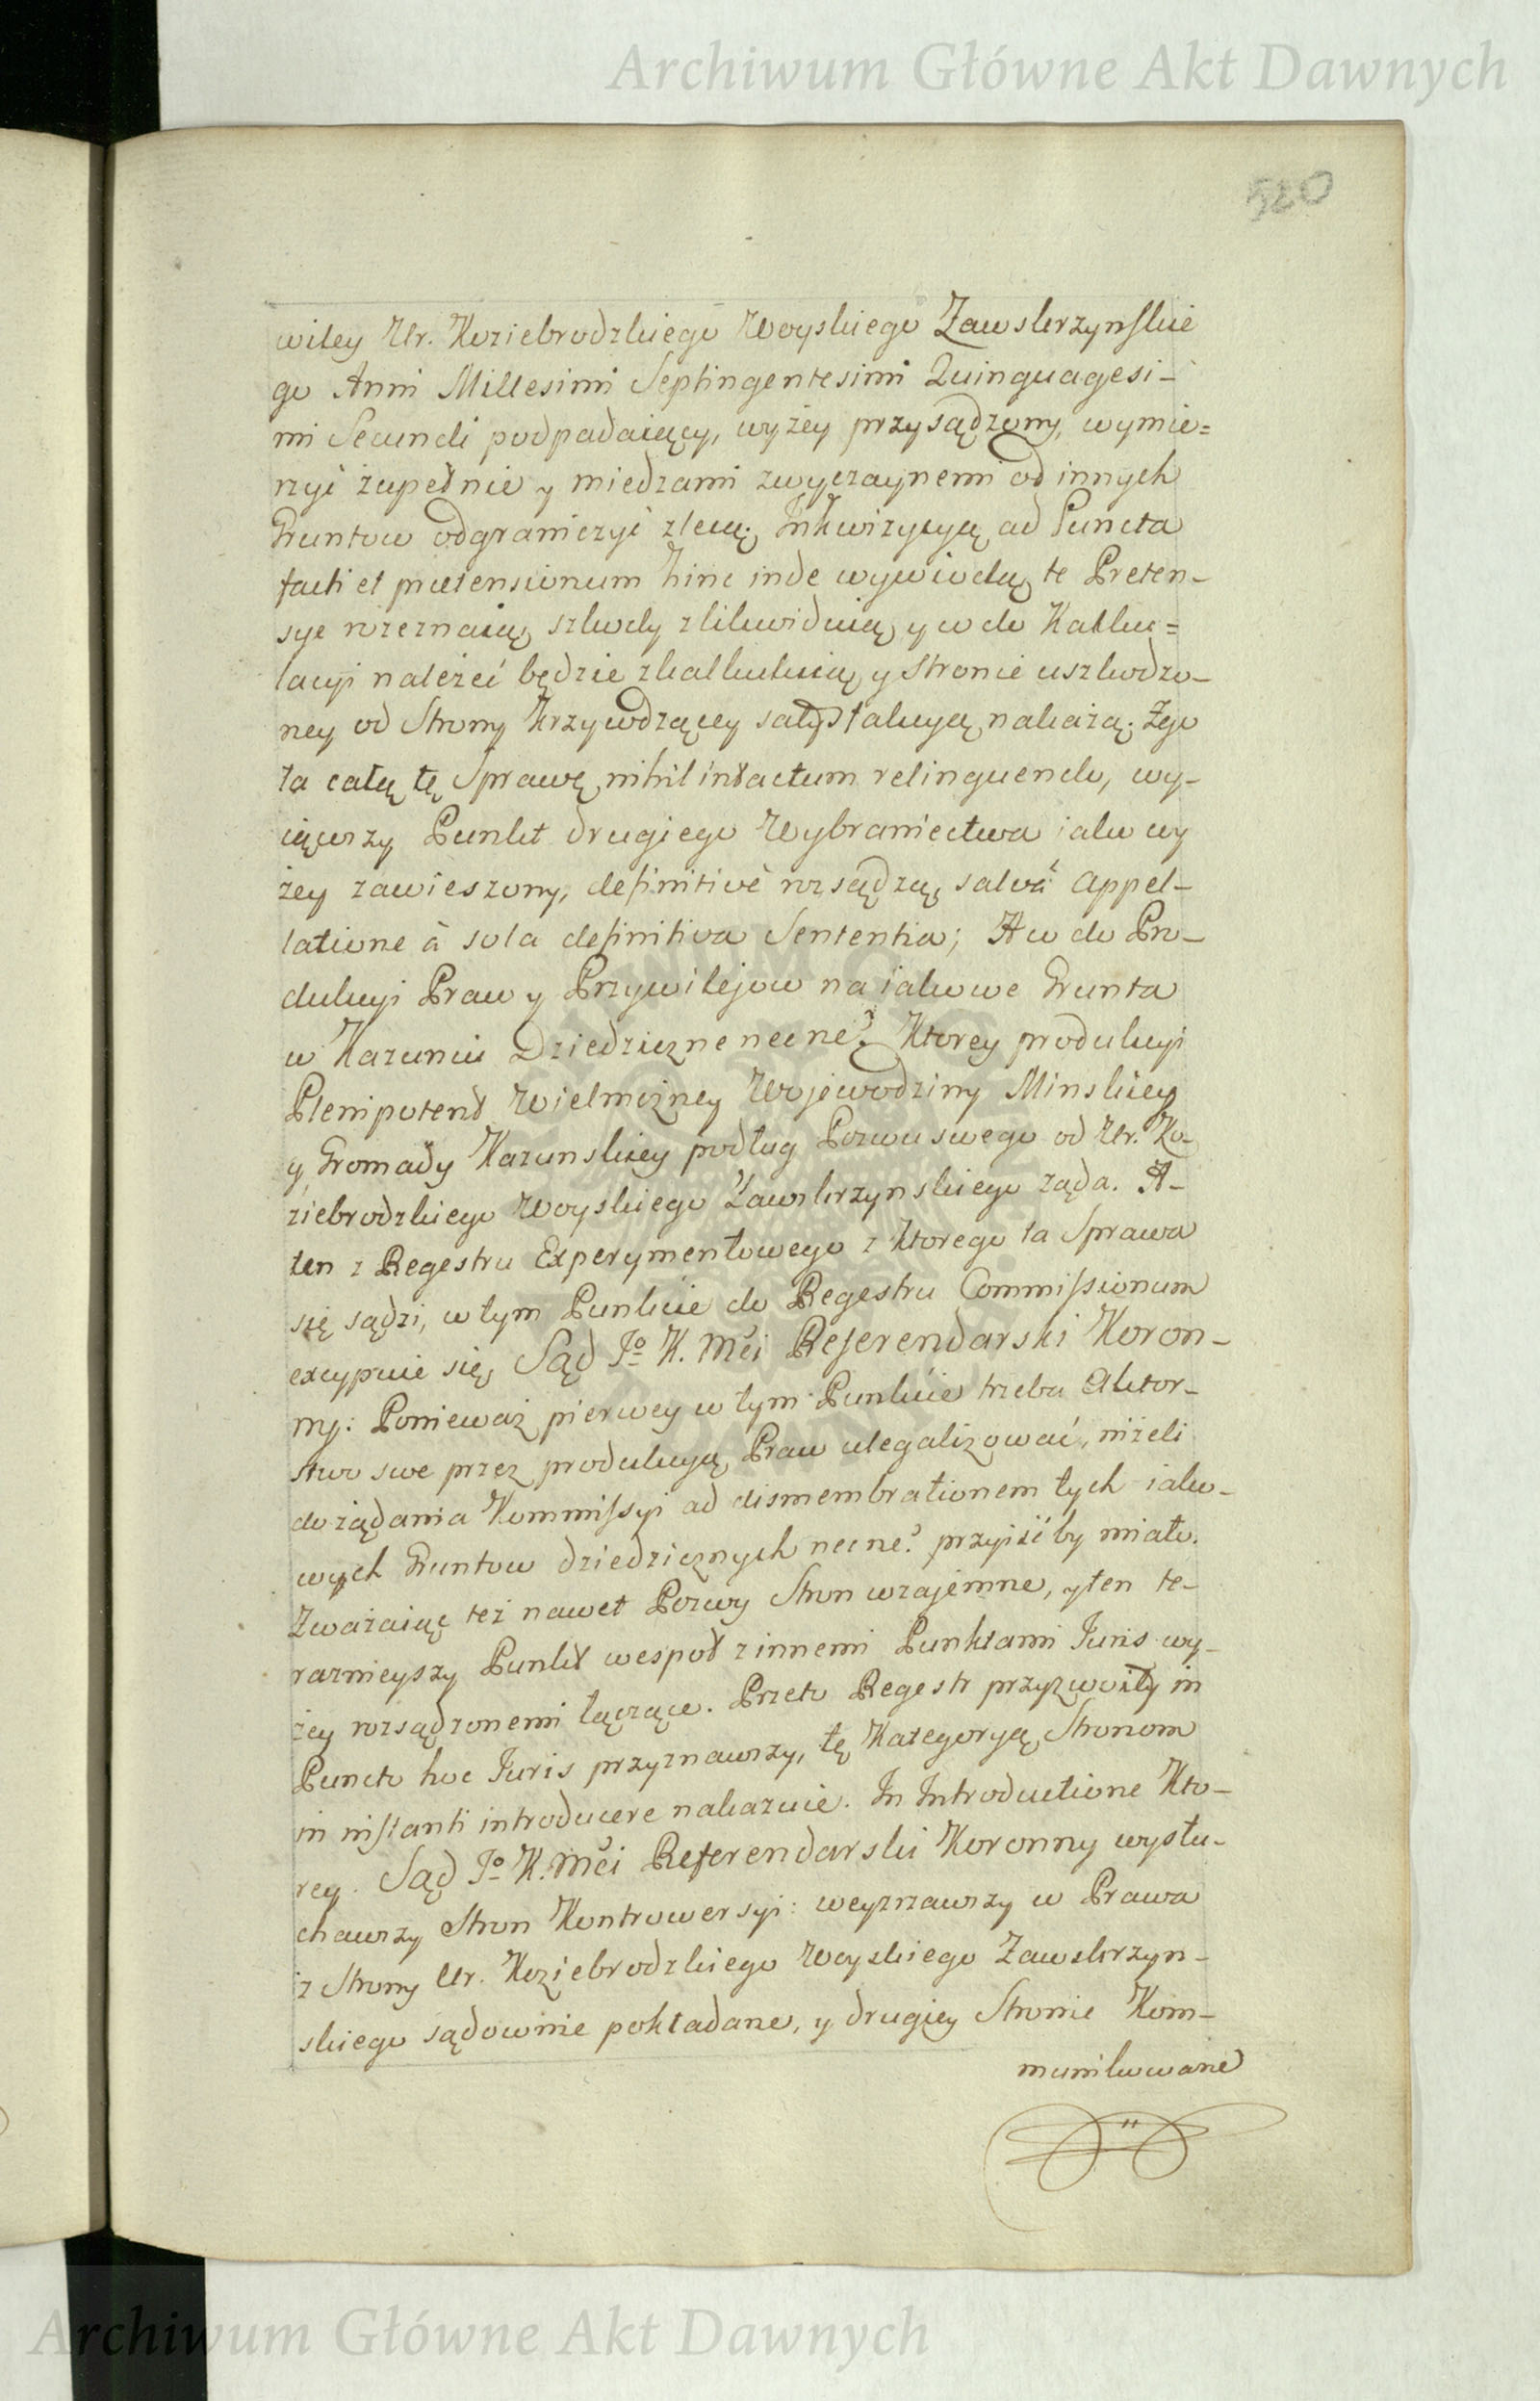 Archiwum Główne Akt Dawnych
520
wiley Ur. Koziebrodzkiego Woyskiego Zawskrzynskie
go Anni Millesimi Septingentesimi Quinquagesi-
mi Secundi podpadaiący, wyżey przysądzony, wymie=
rzyć zupełnie y miedzami zwyczaynemi od innych
Gruntow odgraniczyć zlecą; Inkwizycyą ad Puncta
facti et praetensionum hinc inde wywiodą, te Preten-
sye rozeznaią, szkody zlikwiduią y co do Kalku=
lacyi należeć będzie zkalkuluią y Stronie uszkodzo-
ney od Strony Krzywdzącey satysfakcyą nakażą. Zgo
ła całą tę Sprawę nihil intactum relinquendo, wy-
iąwszy Punkt drugiego Wybraniectwa iako wy
żey zawieszony, definitivè rozsądzą, salvâ appel-
latione à sola definitiva Sententia; A co do Pro-
dukcyi Praw y Przywilejow na iakowe Grunta
w Kazuniu Dziedziczne necne? Ktorey produkcyi
Plenipotent Wielmożney Wojewodziny Minskiey
y Gromady Kazunskiey podług Pozwu swego od Ur. Ko-
ziebrodzkiego Woyskiego Zawskrzynskiego żąda. A-
ten z Regestru Experymentowego z ktorego ta Sprawa
się sądzi, w tym Punkcie do Regestru Commissionum
excypuie się, Sąd Jo K. Mći Referendarski Koron-
ny: Ponieważ pierwey w tym Punkcie trzeba Aktor-
stwo swe przez produkcyą Praw ulegalizować, niżeli
do żądania Kommissyi ad dismembrationem tych iako-
wych Gruntow dziedzicznych necne? przyiść by miało.
Zważaiąc też nawet Pozwy Stron wzajemne, y ten te-
raznieyszy Punkt wespoł z innemi Punktami Juris wy-
żey rozsądzonemi łączące. Przeto Regestr przyzwoity in
Puncto hoc Juris przyznawszy, tę Kategoryą Stronom
in instanti introducere nakazuie. In Introductione Kto-
rey. Sąd Jo K. Mći Referendarski Koronny wysłu-
chawszy Stron Kontrowersyi: weyrzawszy w Prawa
z Strony Ur. Koziebrodzkiego Woyskiego Zawskrzyn-
skiego sądownie pokładane, y drugiey Stronie Kom-
munikowane
Archiwum Główne Akt Dawnych